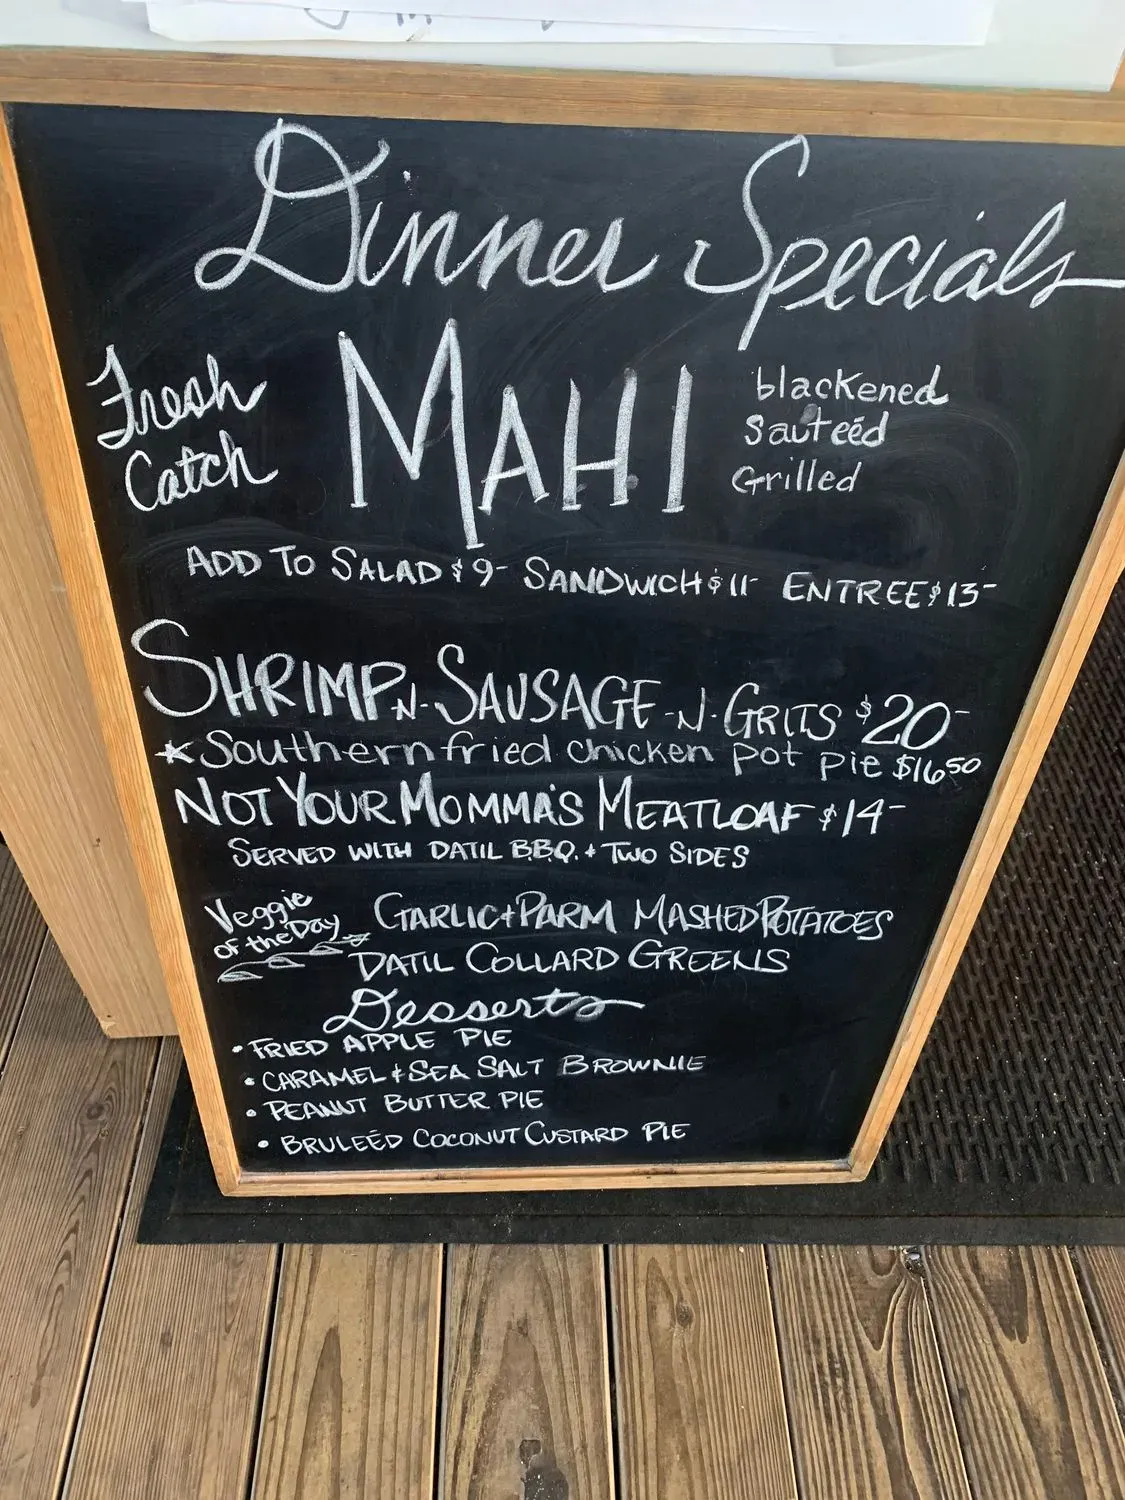 Dinner Specials
Fresh Catch
MAHI
blackened
Sauteéd
Grilled
ADD TO SALAD $9- SANDWICH $11- ENTREE $13-
SHRIMP-N-SAUSAGE-N-GRITS $20-
*Southern fried chicken pot pie $16.50
NOT YOUR MOMMA'S MEATLOAF $14-
SERVED WITH DATIL B.B.Q. + TWO SIDES
Veggie
of the Day
GARLIC + PARM MASHED POTATOES
DATIL COLLARD GREENS
Desserts
• FRIED APPLE PIE
• CARAMEL + SEA SALT BROWNIE
• PEANUT BUTTER PIE
• BRULEÉD COCONUT CUSTARD PIE